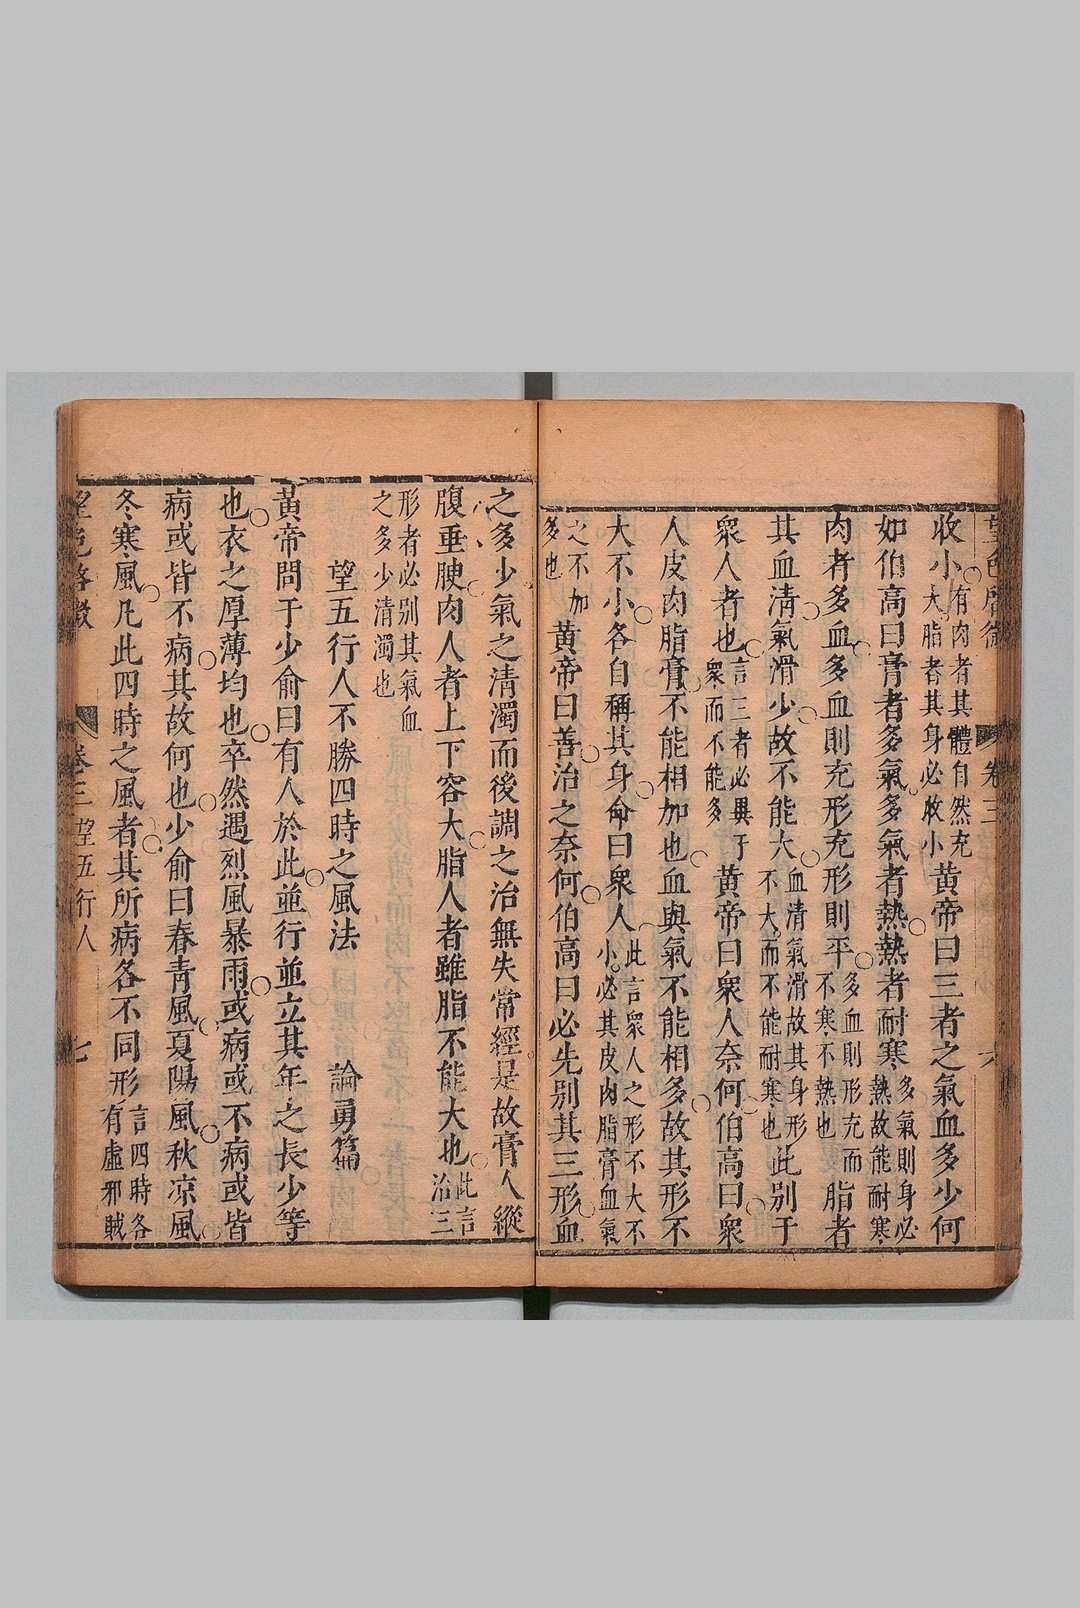 收小有肉者其體自然充大脂者其身必收小黄帝曰三者之氣血多少何
如伯高曰膏者多氣多氣者熱熱者耐寒多氣則身必熱故能耐寒
肉者多血多血則充形充形則平多血則形充而不寒不熱也脂者
其血清氣滑少故不能大血清氣滑故其身形不大而不能耐寒也此别于
衆人者也言三者必異于衆而不能多黄帝曰衆人奈何伯高曰衆
人皮肉脂膏不能相加也血與氣不能相多故其形不
大不小各自稱其身命曰衆人此言衆人之形不大不小必其皮肉脂膏血氣
之不加多也黄帝曰善治之奈何伯高曰必先别其三形血
之多少氣之清濁而後調之治無失常經是故膏人縱
腹垂腴肉人者上下容大脂人者雖脂不能大也此言治三
形者必别其氣血之多少清濁也
望五行人不勝四時之風法 論勇篇
黄帝問于少俞曰有人於此並行並立其年之長少等
也衣之厚薄均也卒然遇烈風暴雨或病或不病或皆
病或皆不病其故何也少俞曰春青風夏陽風秋凉風
冬寒風凡此四時之風者其所病各不同形言四時各有虚邪賊
望色啓微 卷三 望五行人 七